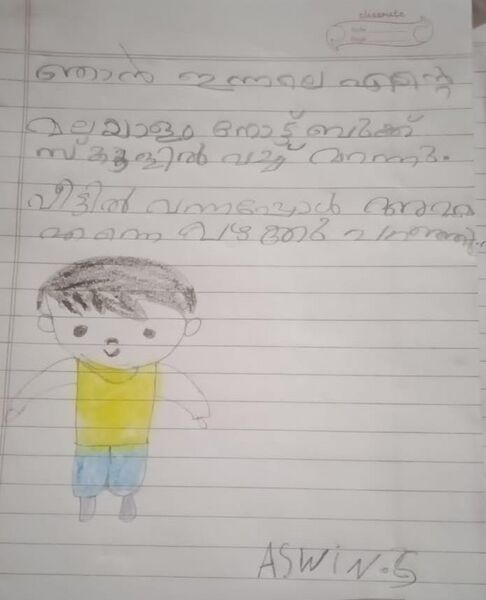 classmate
Date
Page
ഞാൻ ഇന്നലെ എന്റെ
മലയാളം നോട്ട് ബുക്ക്
സ്കൂളിൽ വച്ച് മറന്നു.
വീട്ടിൽ വന്നപ്പോൾ അമ്മ
എന്നെ വഴക്ക് പറഞ്ഞു.
ASWIN.S